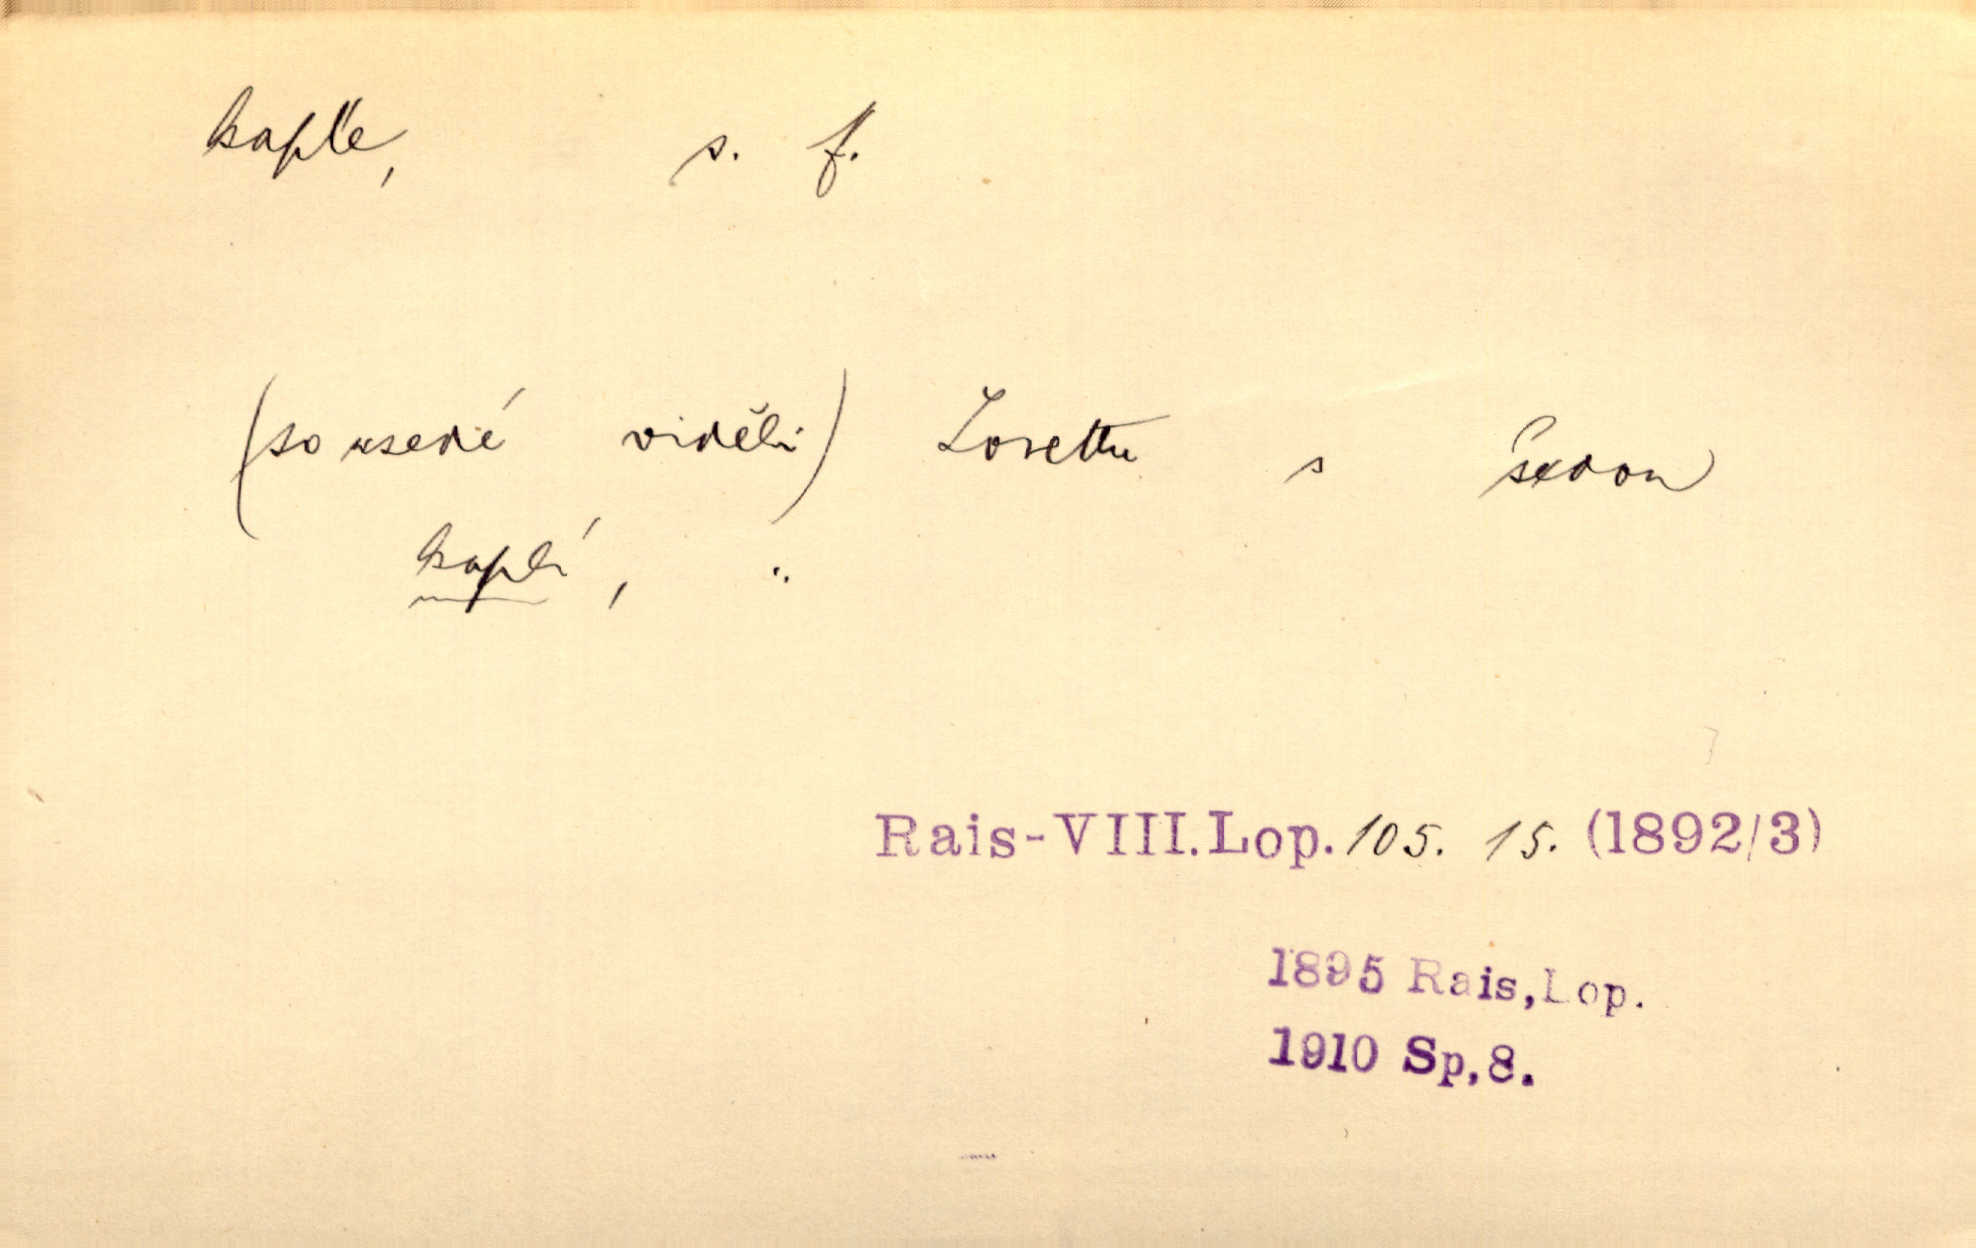 kaple, s. f.
(sousedé viděli) Lorettu s šedou
kaplí, ..
Rais-VIII.Lop. 105. 15. (1892/3)
1895 Rais,Lop.
1910 Sp,8.